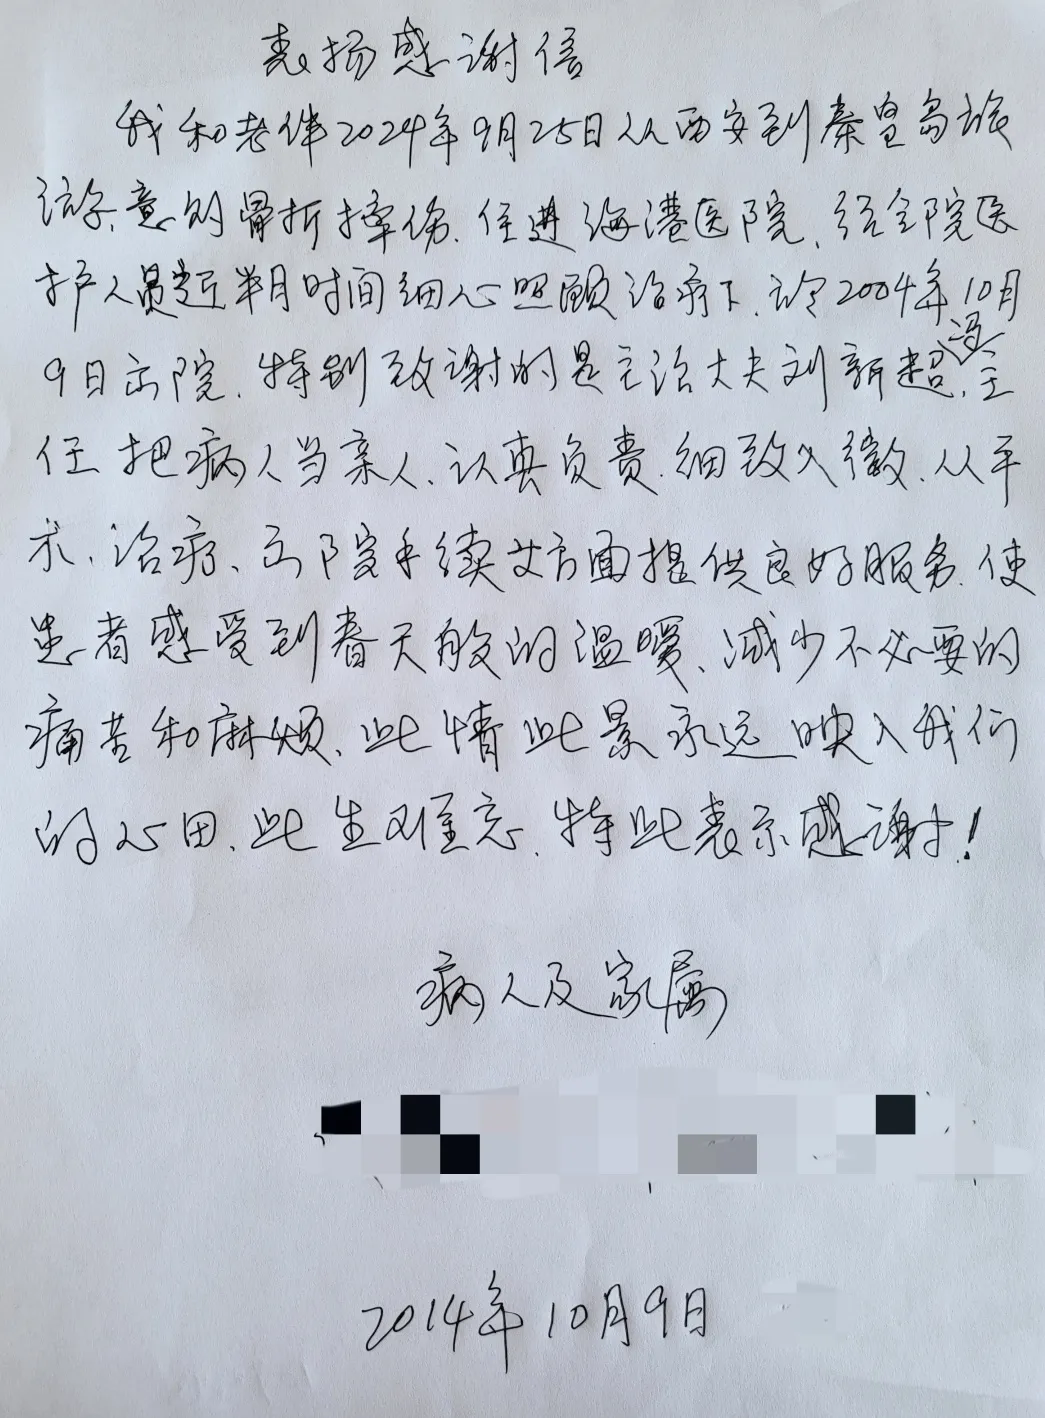 表扬感谢信
我和老伴2024年9月25日从西安到秦皇岛旅
游,意外骨折摔伤.住进海港医院、经全院医
护人员近半月时间细心照顾治疗下.于2004年10月
9日出院.特别致谢的是主治大夫刘新超、冯主
任把病人当亲人、认真负责.细致入微.从手
术、治疗、出院手续女方面提供良好服务.使
患者感受到春天般的温暖、减少不必要的
痛苦和麻烦、此情此景永远映入我们
的心田、此生难忘.特此表示感谢!
病人及家属
2014年10月9日